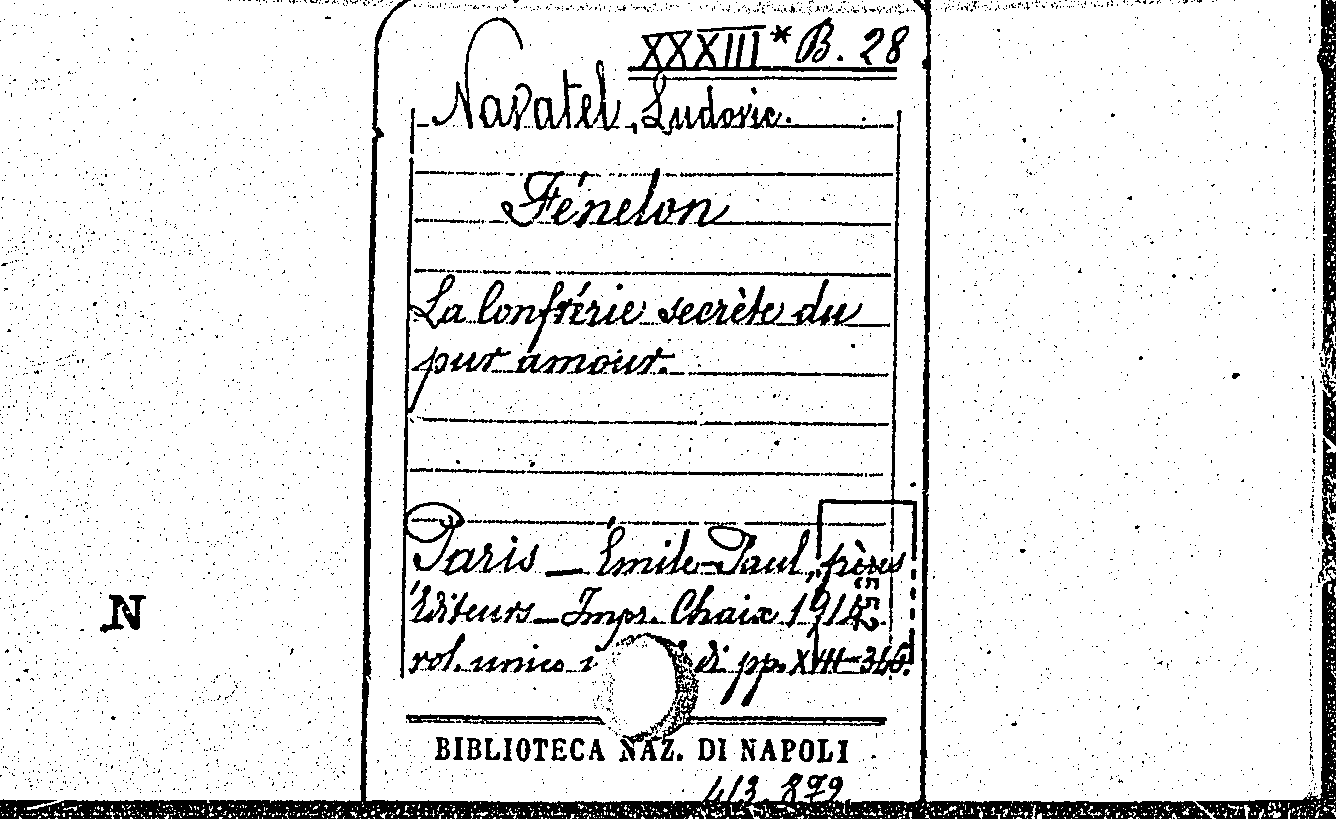 XXXIII * B. 28
Navatel, Ludovic.
Fénelon
La Confrérie secrète du
pur amour.
Paris — Émile-Paul, frères
Éditeurs — Impr. Chaix
vol. unico di pp. XVIII-
N
BIBLIOTECA NAZ. DI NAPOLI
413.879